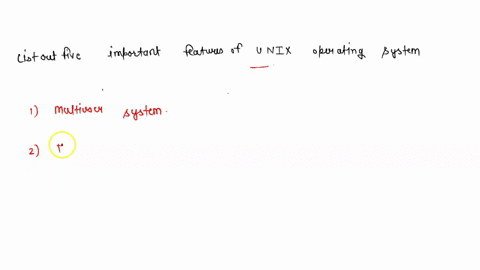 List out five important features of UNIX operating system
1) Multiuser system.
2)